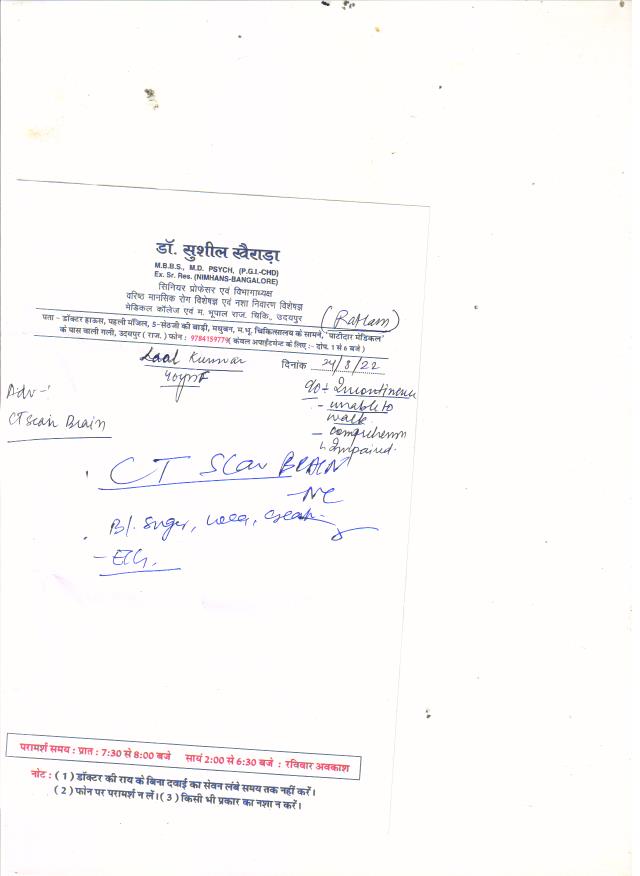 डॉ. सुशील खैराड़ा
M.B.B.S., M.D. PSYCH, (P.G.I.-CHD)
Ex. Sr. Res. (NIMHANS-BANGALORE)
सिनियर प्रोफेसर एवं विभागाध्यक्ष
वरिष्ठ मानसिक रोग विशेषज्ञ एवं नशा निवारण विशेषज्ञ
मेडिकल कॉलेज एवं म. भूपाल राज. चिकि., उदयपुर
(Ratlam)
पता – डॉक्टर हाऊस, पहली मंजिल, 5-सेठजी की बाड़ी, मधुबन, म.भू. चिकित्सालय के सामने, 'पाटीदार मेडिकल'
के पास वाली गली, उदयपुर ( राज. ) फोन : 9784159779( केवल अपाईंटमेन्ट के लिए :- दोप. 1 से 6 बजे )
Laal Kunwar
दिनांक 24/8/22
Adv -
CT Scan Brain
Incontinence
- unable to
walk.
- comprehension
Impaired.
CT Scan BRAIN
- NC
B/. Sugar, Urea, Creat.
- ECG.
परामर्श समय : प्रात : 7:30 से 8:00 बजे सायं 2:00 से 6:30 बजे : रविवार अवकाश
नोट : ( 1 ) डॉक्टर की राय के बिना दवाई का सेवन लंबे समय तक नहीं करें।
( 2 ) फोन पर परामर्श न लें। ( 3 ) किसी भी प्रकार का नशा न करें।